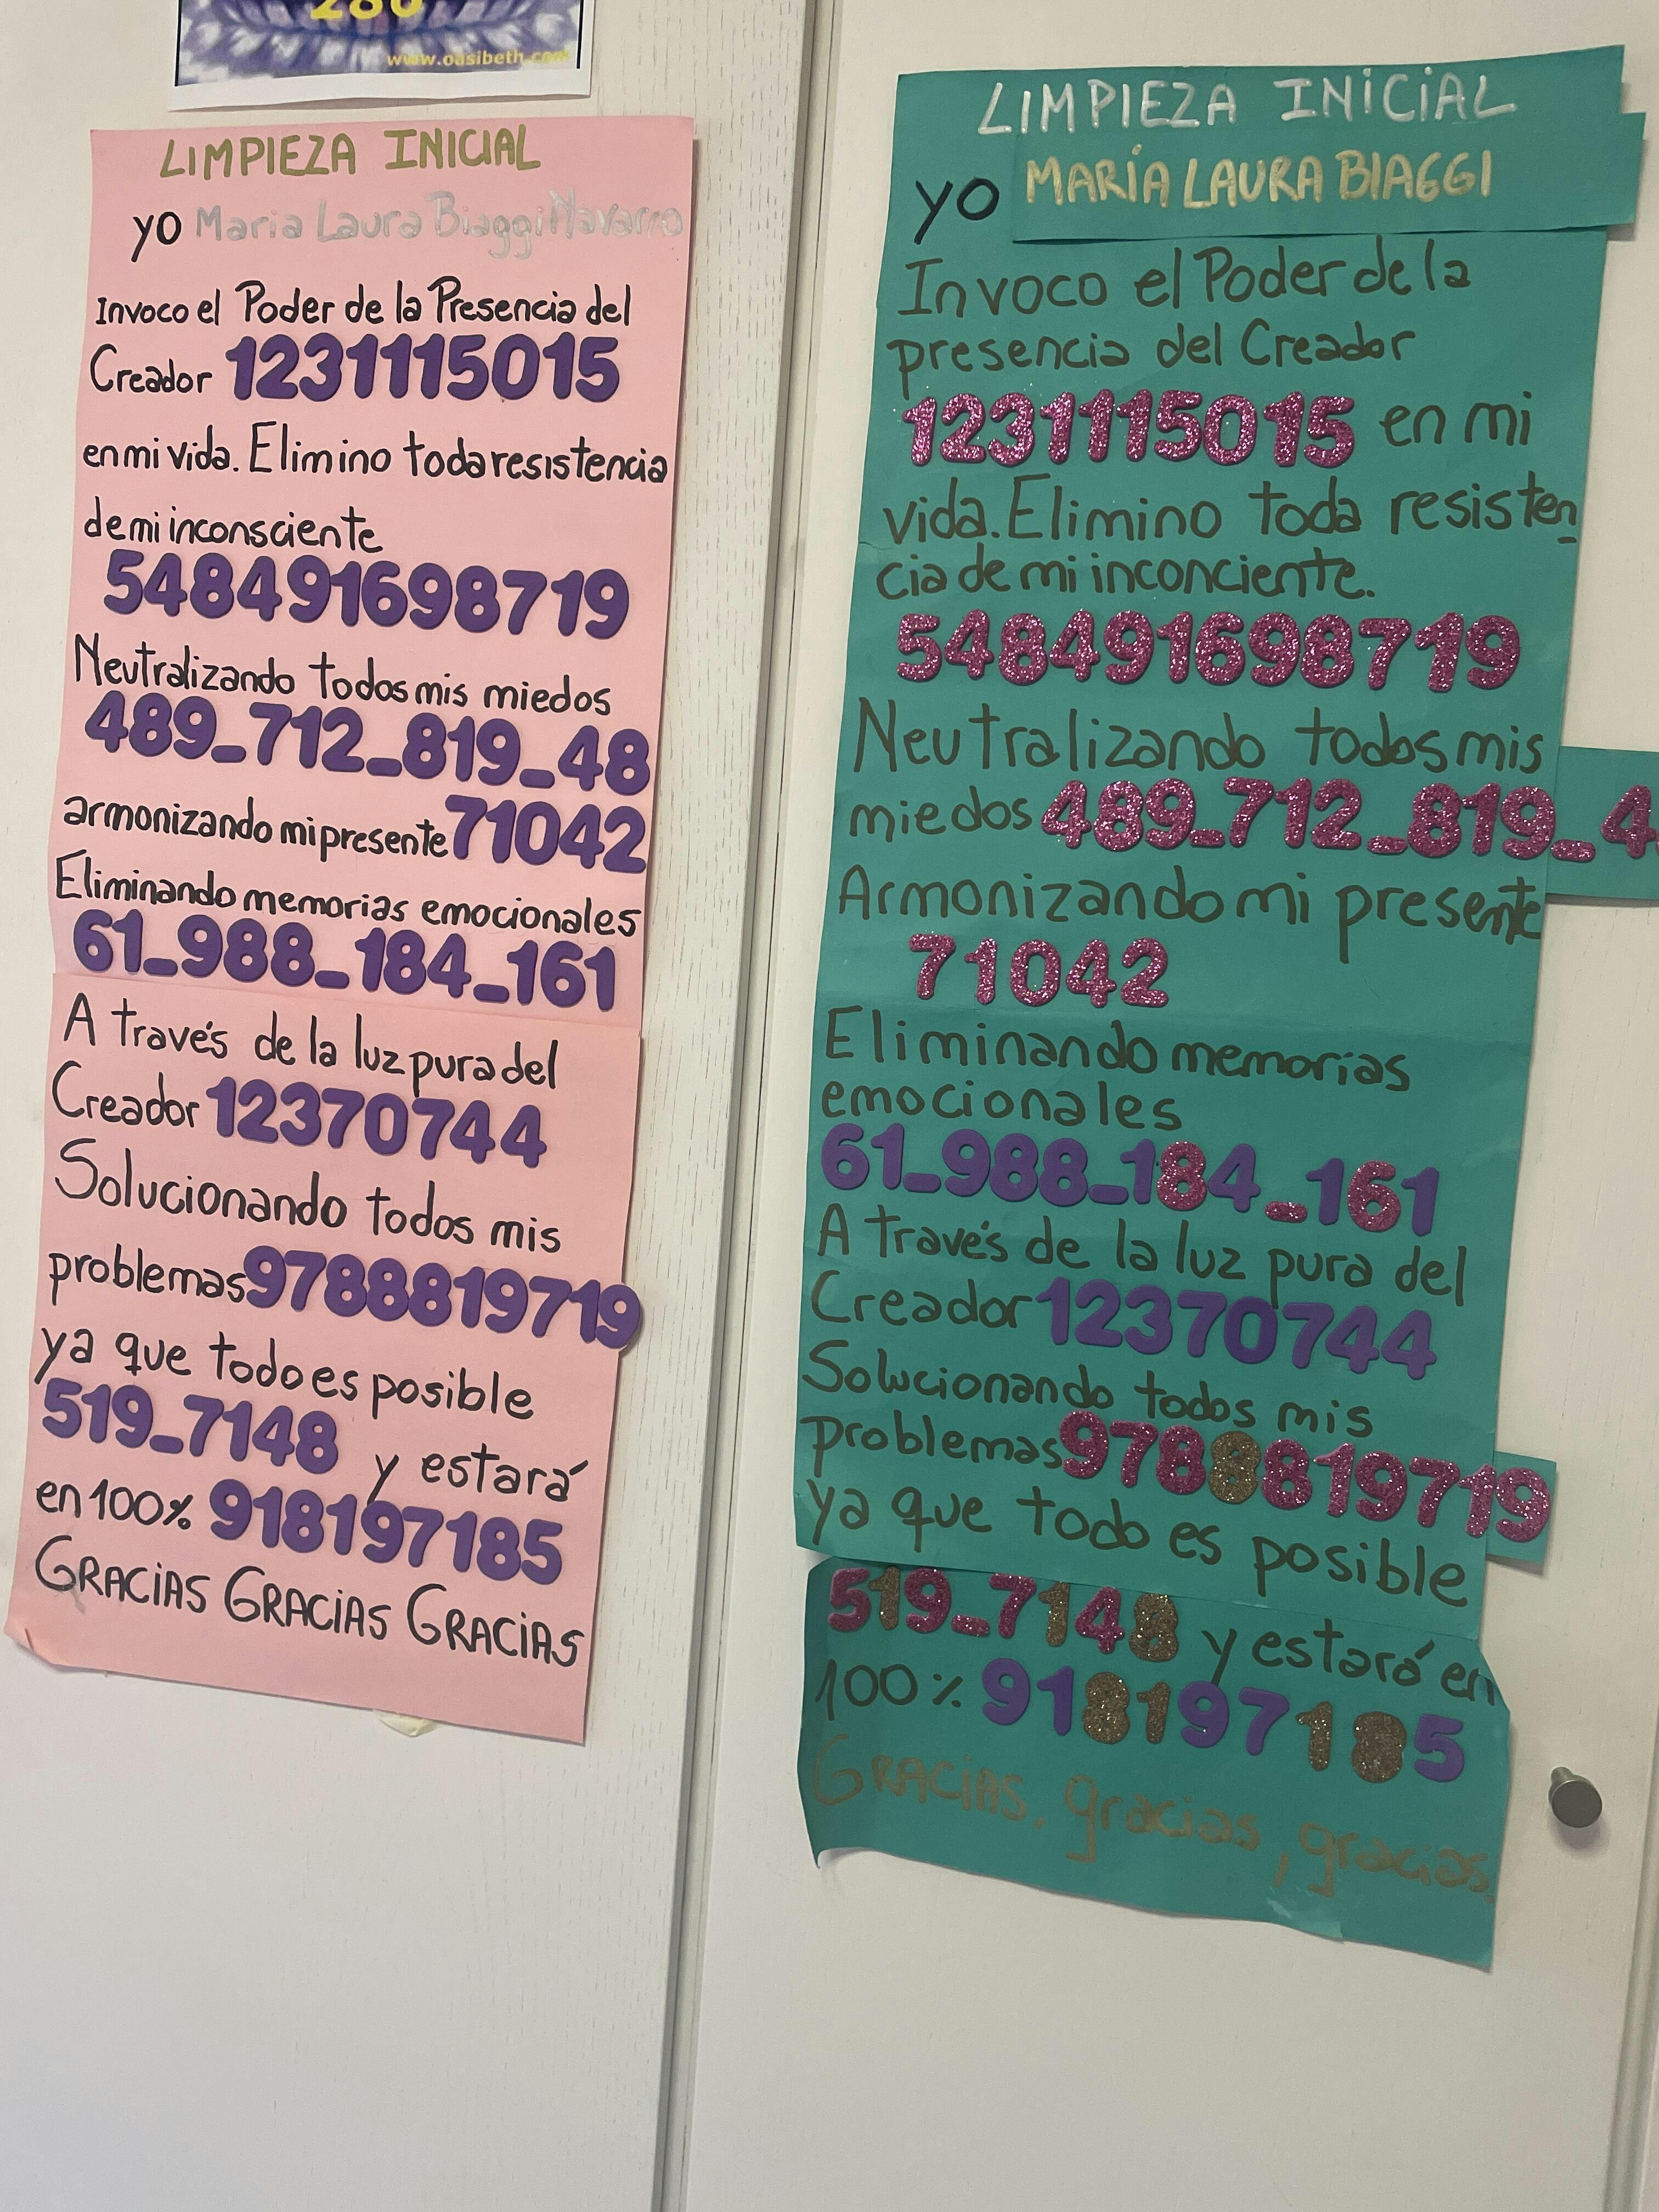 280
www.oasibeth.com
LIMPIEZA INICIAL
yo Maria Laura Biaggi Navarro
Invoco el Poder de la Presencia del
Creador 1231115015
en mi vida. Elimino toda resistencia
de mi inconsciente
548491698719
Neutralizando todos mis miedos
489_712_819_48
armonizando mi presente 71042
Eliminando memorias emocionales
61_988_184_161
A través de la luz pura del
Creador 12370744
Solucionando todos mis
problemas 9788819719
ya que todo es posible
519_7148 y estará
en 100% 918197185
GRACIAS GRACIAS GRACIAS
LIMPIEZA INICIAL
yo MARÍA LAURA BIAGGI
Invoco el Poder de la
presencia del Creador
1231115015 en mi
vida. Elimino toda resisten
cia de mi inconciente.
548491698719
Neutralizando todos mis
miedos 489_712_819_4
Armonizando mi presente
71042
Eliminando memorias
emocionales
61_988_184_161
A través de la luz pura del
Creador 12370744
Solucionando todos mis
problemas 9788819719
ya que todo es posible
519_7148 y estará en
100% 918197185
GRACIAS, gracias, gracias.